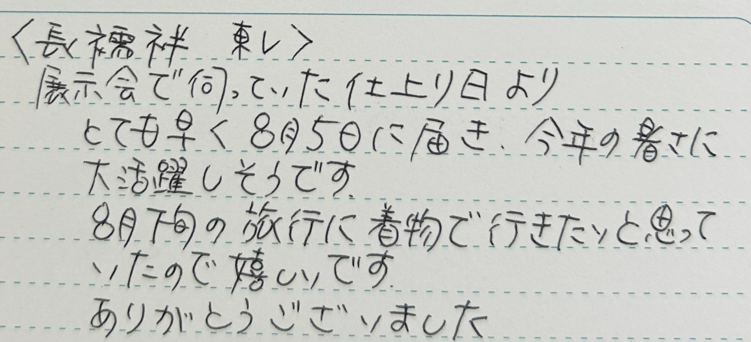 〈長襦袢 東レ〉
展示会で伺っていた仕上り日より
とても早く8月5日に届き、今年の暑さに
大活躍しそうです。
8月下旬の旅行に着物で行きたいと思って
いたので嬉しいです。
ありがとうございました